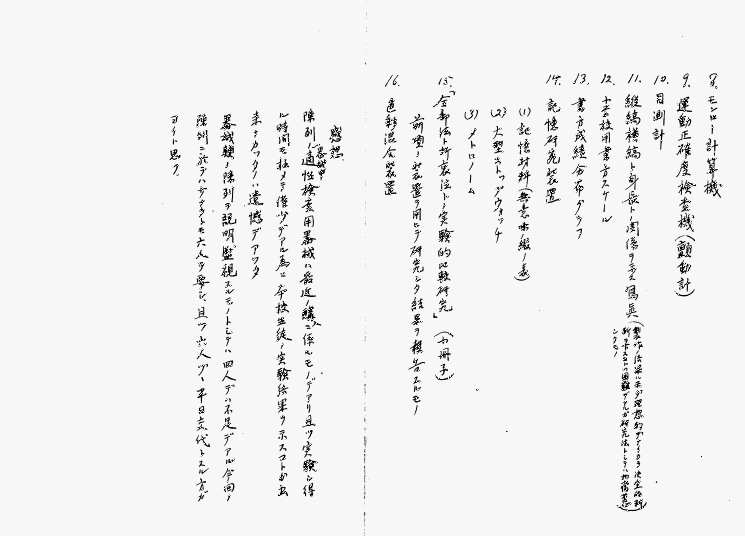 8. モンロー計算機
9. 運動正確度検査機(顫動計)
10. 目測計
11. 縦縞横縞ト身長トノ関係ヲ示ス寫真
12. 本校用書方スケール
13. 書方成績分布グラフ
14. 記憶研究装置
(1) 記憶材料(無意味綴ノ表)
(2) 大型ストップウォッチ
(3) メトロノーム
15.「全部法ト折衷法トノ実験的比較研究」(小冊子)
前項ノ装置ヲ用ヒテ研究シタ結果ヲ報告スルモノ
16. 色彩混合装置
感想
陳列ノ適性検査用器械ハ最近ノ購入ニ係ルモノデアリ且ツ実験シ得
ル時間モ極メテ僅少デアル為ニ本校生徒ノ実験結果ヲ示スコトガ出
来ナカッタノハ遺憾デアッタ
器械類ノ陳列ヲ説明監視スルモノトシテハ四人デハ不足デアル今回ノ
陳列ニ於テハ少クトモ六人ヲ要シ且ツ六人ヅツ半日交代トスル方ガ
ヨイト思フ